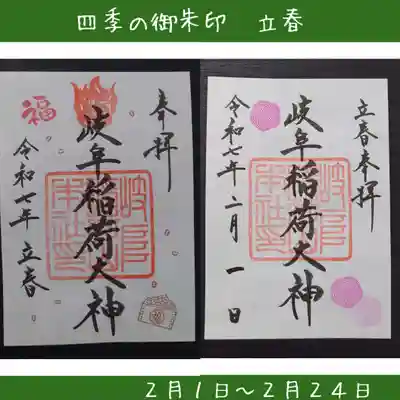 四季の御朱印 立春
奉拝
岐阜稲荷大神
令和七年 立春
福
立春奉拝
岐阜稲荷大神
令和七年二月一日
2月1日~2月24日